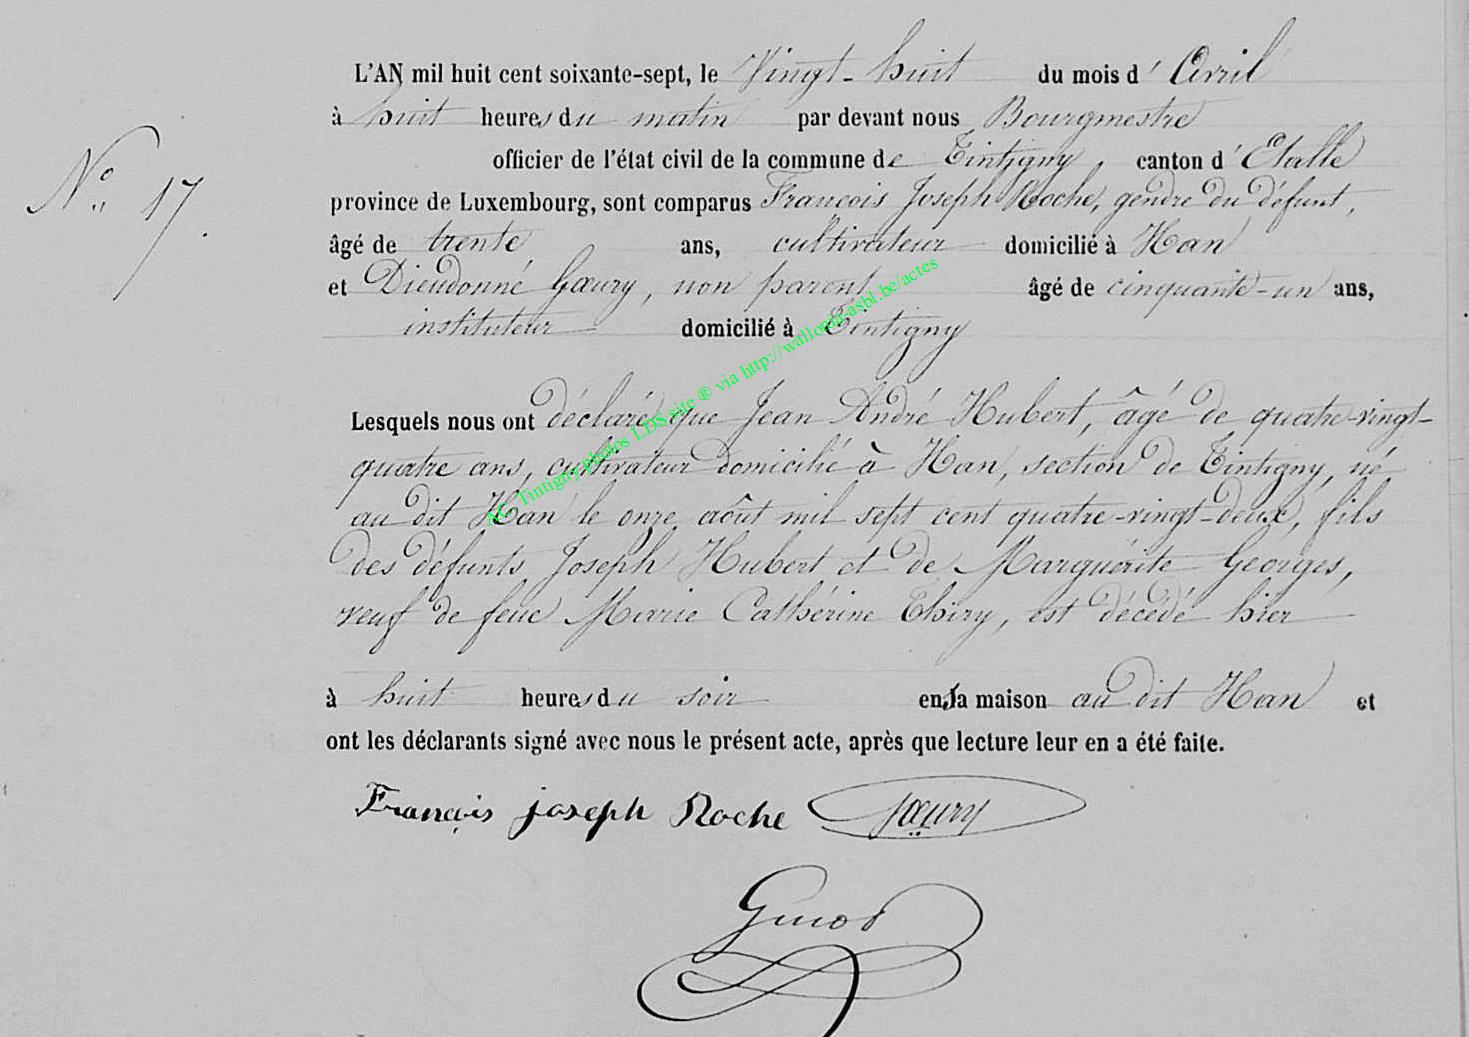 L'AN mil huit cent soixante-sept, le Vingt-huit du mois d'Avril
à huit heures du matin par devant nous Bourgmestre
officier de l'état civil de la commune de Tintigny, canton d'Etalle
N° 17.
province de Luxembourg, sont comparus François Joseph Roche, gendre du défunt,
âgé de trente ans, cultivateur domicilié à Han
et Dieudonné Gœury, non parent âgé de cinquante-un ans,
instituteur domicilié à Tintigny
Lesquels nous ont déclaré que Jean André Hubert, âgé de quatre-vingt-
quatre ans, cultivateur domicilié à Han, section de Tintigny, né
au dit Han le onze août mil sept cent quatre-vingt-deux, fils
des défunts Joseph Hubert et de Marguérite Georges,
veuf de feue Marie Cathérine Thiry, est décédé hier
à huit heures du soir en sa maison au dit Han et
ont les déclarants signé avec nous le présent acte, après que lecture leur en a été faite.
François joseph Roche Gœury
AC Tintigny photos LDS site ® via http://wallonia-asbl.be/actes